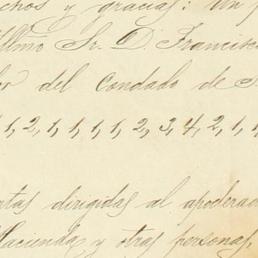 chos y gracias: Un p
Illmo Sr. D. Francisc
or del Condado de S
1, 2, 1, 1, 1, 1, 2, 3, 4, 2, 1, 1
rtas dirigidas al apoderad
Hacienda y otras personas,